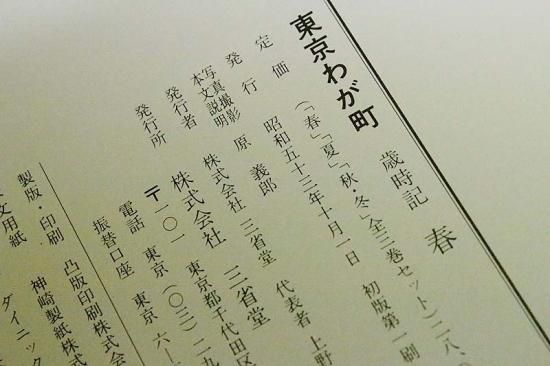 東京わが町 歳時記 春
定価 (「春」「夏」「秋・冬」全三巻セット)二八、
発行 昭和五十三年十月一日 初版第一刷
写真撮影 本文説明 原 義郎
発行者 株式会社 三省堂 代表者 上野
発行所 株式会社 三省堂
〒一〇一 東京都千代田区
電話 東京(〇三)二九
振替口座 東京 六―
製版・印刷 凸版印刷株式会
文用紙 神崎製紙株式
ダイニック